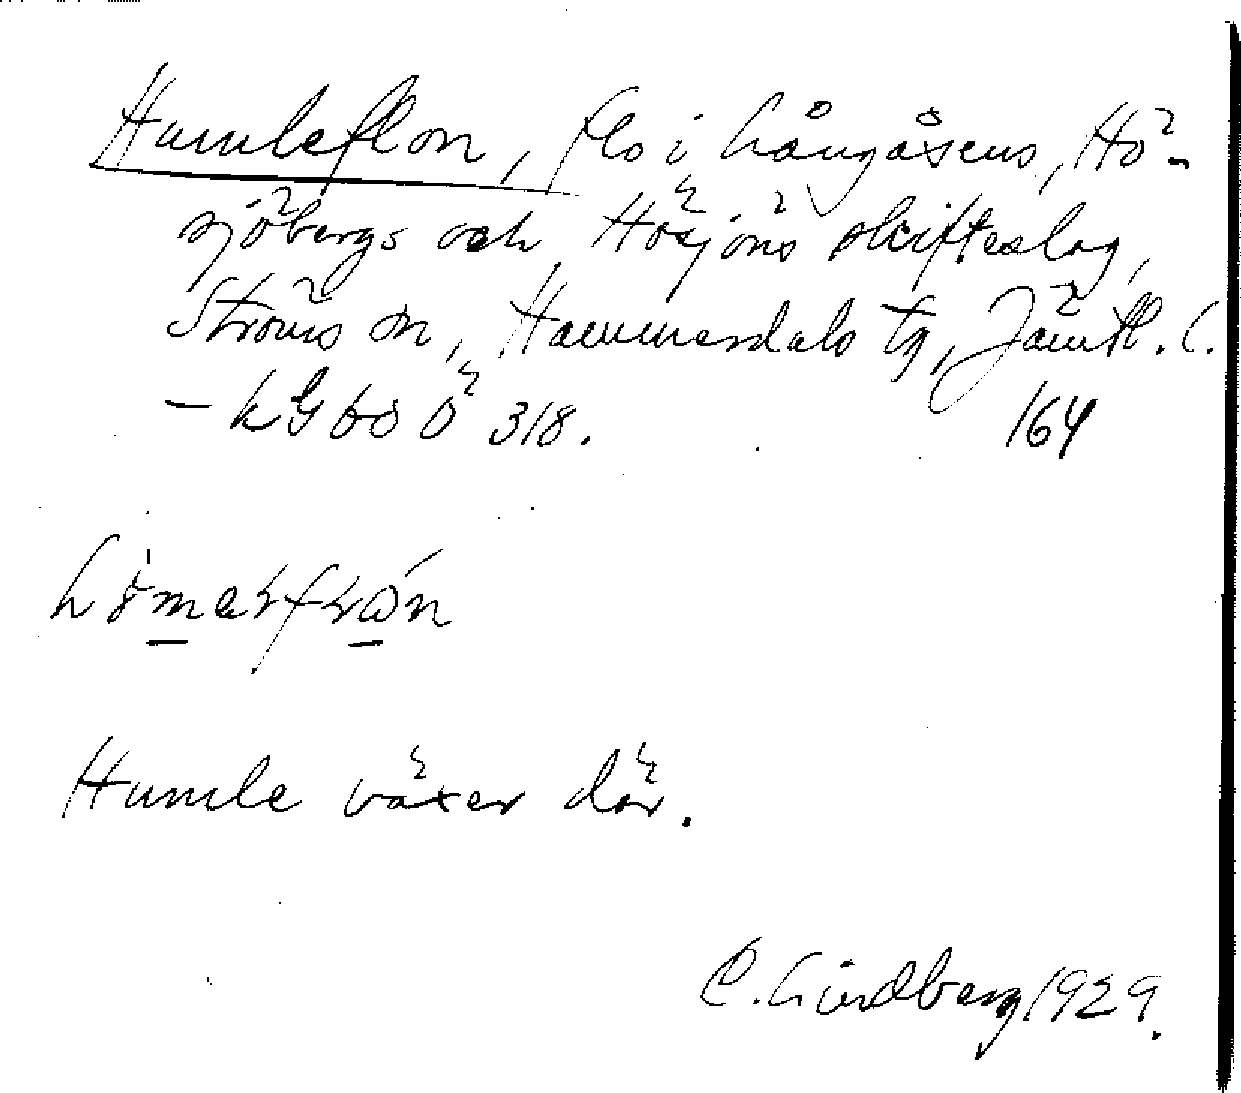 Humleflon, flo i Långåsens, Hö-
sjöbergs och Hösjöns skifteslag,
Ströms sn, Hammerdals tg, Jämtl. l.
– kGbo Ö 318. 164
Humle växer där.
C. Lindberg 1929.